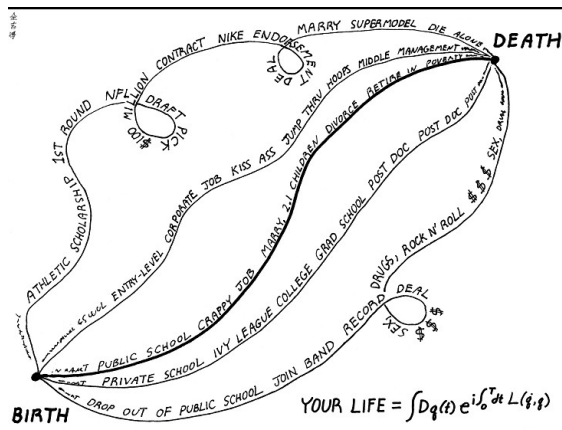 DEATH
ATHLETIC SCHOLARSHIP 1ST ROUND NFL DRAFT PICK $100 MILLION CONTRACT NIKE ENDORSEMENT DEAL MARRY SUPERMODEL DIE ALONE
ENTRY-LEVEL CORPORATE JOB KISS ASS JUMP THRU HOOPS MIDDLE MANAGEMENT
PUBLIC SCHOOL CRAPPY JOB MARRY, 2.1 CHILDREN DIVORCE RETIRE IN POVERTY
PRIVATE SCHOOL IVY LEAGUE COLLEGE GRAD SCHOOL POST DOC POST DOC POST
DROP OUT OF PUBLIC SCHOOL JOIN BAND RECORD DEAL $$ $$ SEX, DRUGS, ROCK N' ROLL $ $ $ SEX,
BIRTH
YOUR LIFE = ∫Dq(t) e^{i∫₀ᵀdt L(q̇,q)}